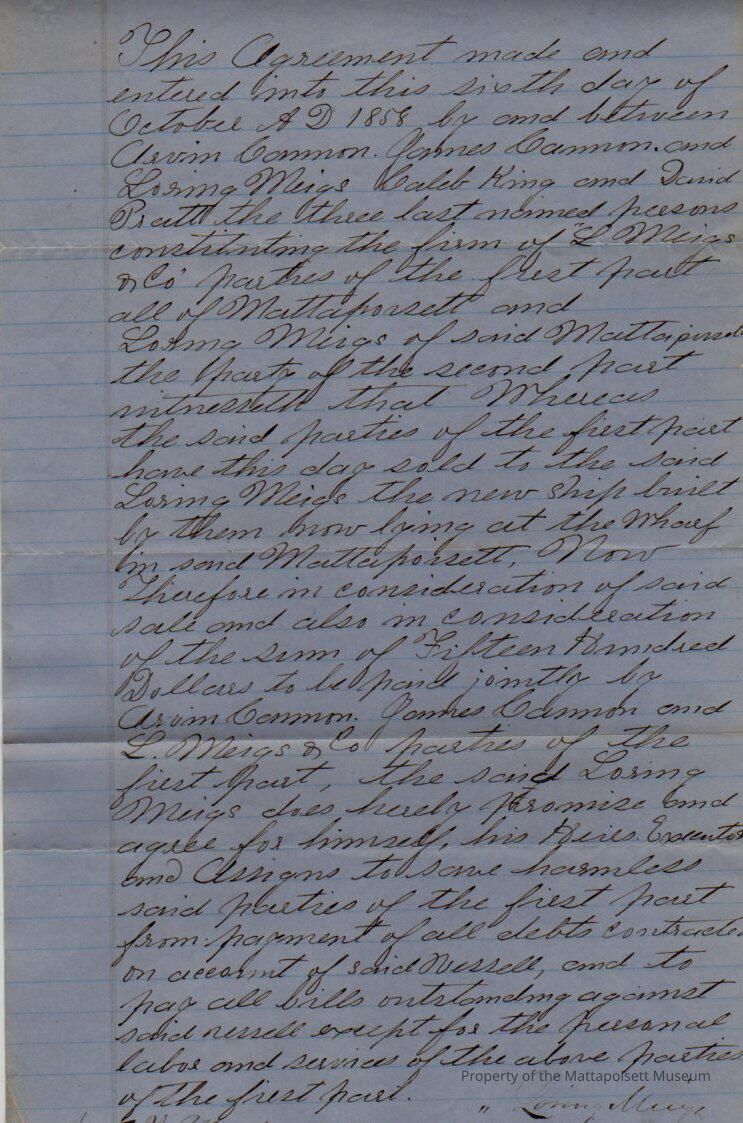 This Agreement made and
entered into this sixth day of
October A D 1858 by and between
Arvin Cannon. James Cannon. and
Loring Meigs Caleb King and David
Pratt the three last named persons
constituting the firm of "L Meigs
& Co" parties of the first part
all of Mattapoisett and
Loring Meigs of said Mattapoisett
the party of the second part
witnesseth that Whereas
the said parties of the first part
have this day sold to the said
Loring Meigs the new ship built
by them now lying at the Wharf
in said Mattapoisett, Now
Therefore in consideration of said
sale and also in consideration
of the sum of Fifteen Hundred
Dollars to be paid jointly by
Arvin Cannon. James Cannon and
L. Meigs & Co parties of the
first part, the said Loring
Meigs does hereby promise and
agree for himself, his Heirs Executors
and Assigns to save harmless
said parties of the first part
from payment of all debts contracted
on account of said Vessell, and to
pay all bills outstanding against
said vessell except for the personal
labor and services of the above parties
of the first part.
Property of the Mattapoisett Museum
" Loring Meigs